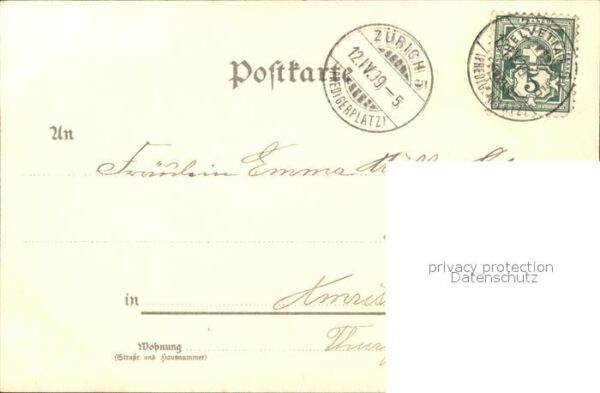 Postkarte
ZÜRICH 5
12.IV.99.-5
(PREDIGERPLATZ)
HELVETIA
5
An
Fräulein Emma
privacy protection
Datenschutz
in
Amris
Thurg
Wohnung
(Straße und Hausnummer)